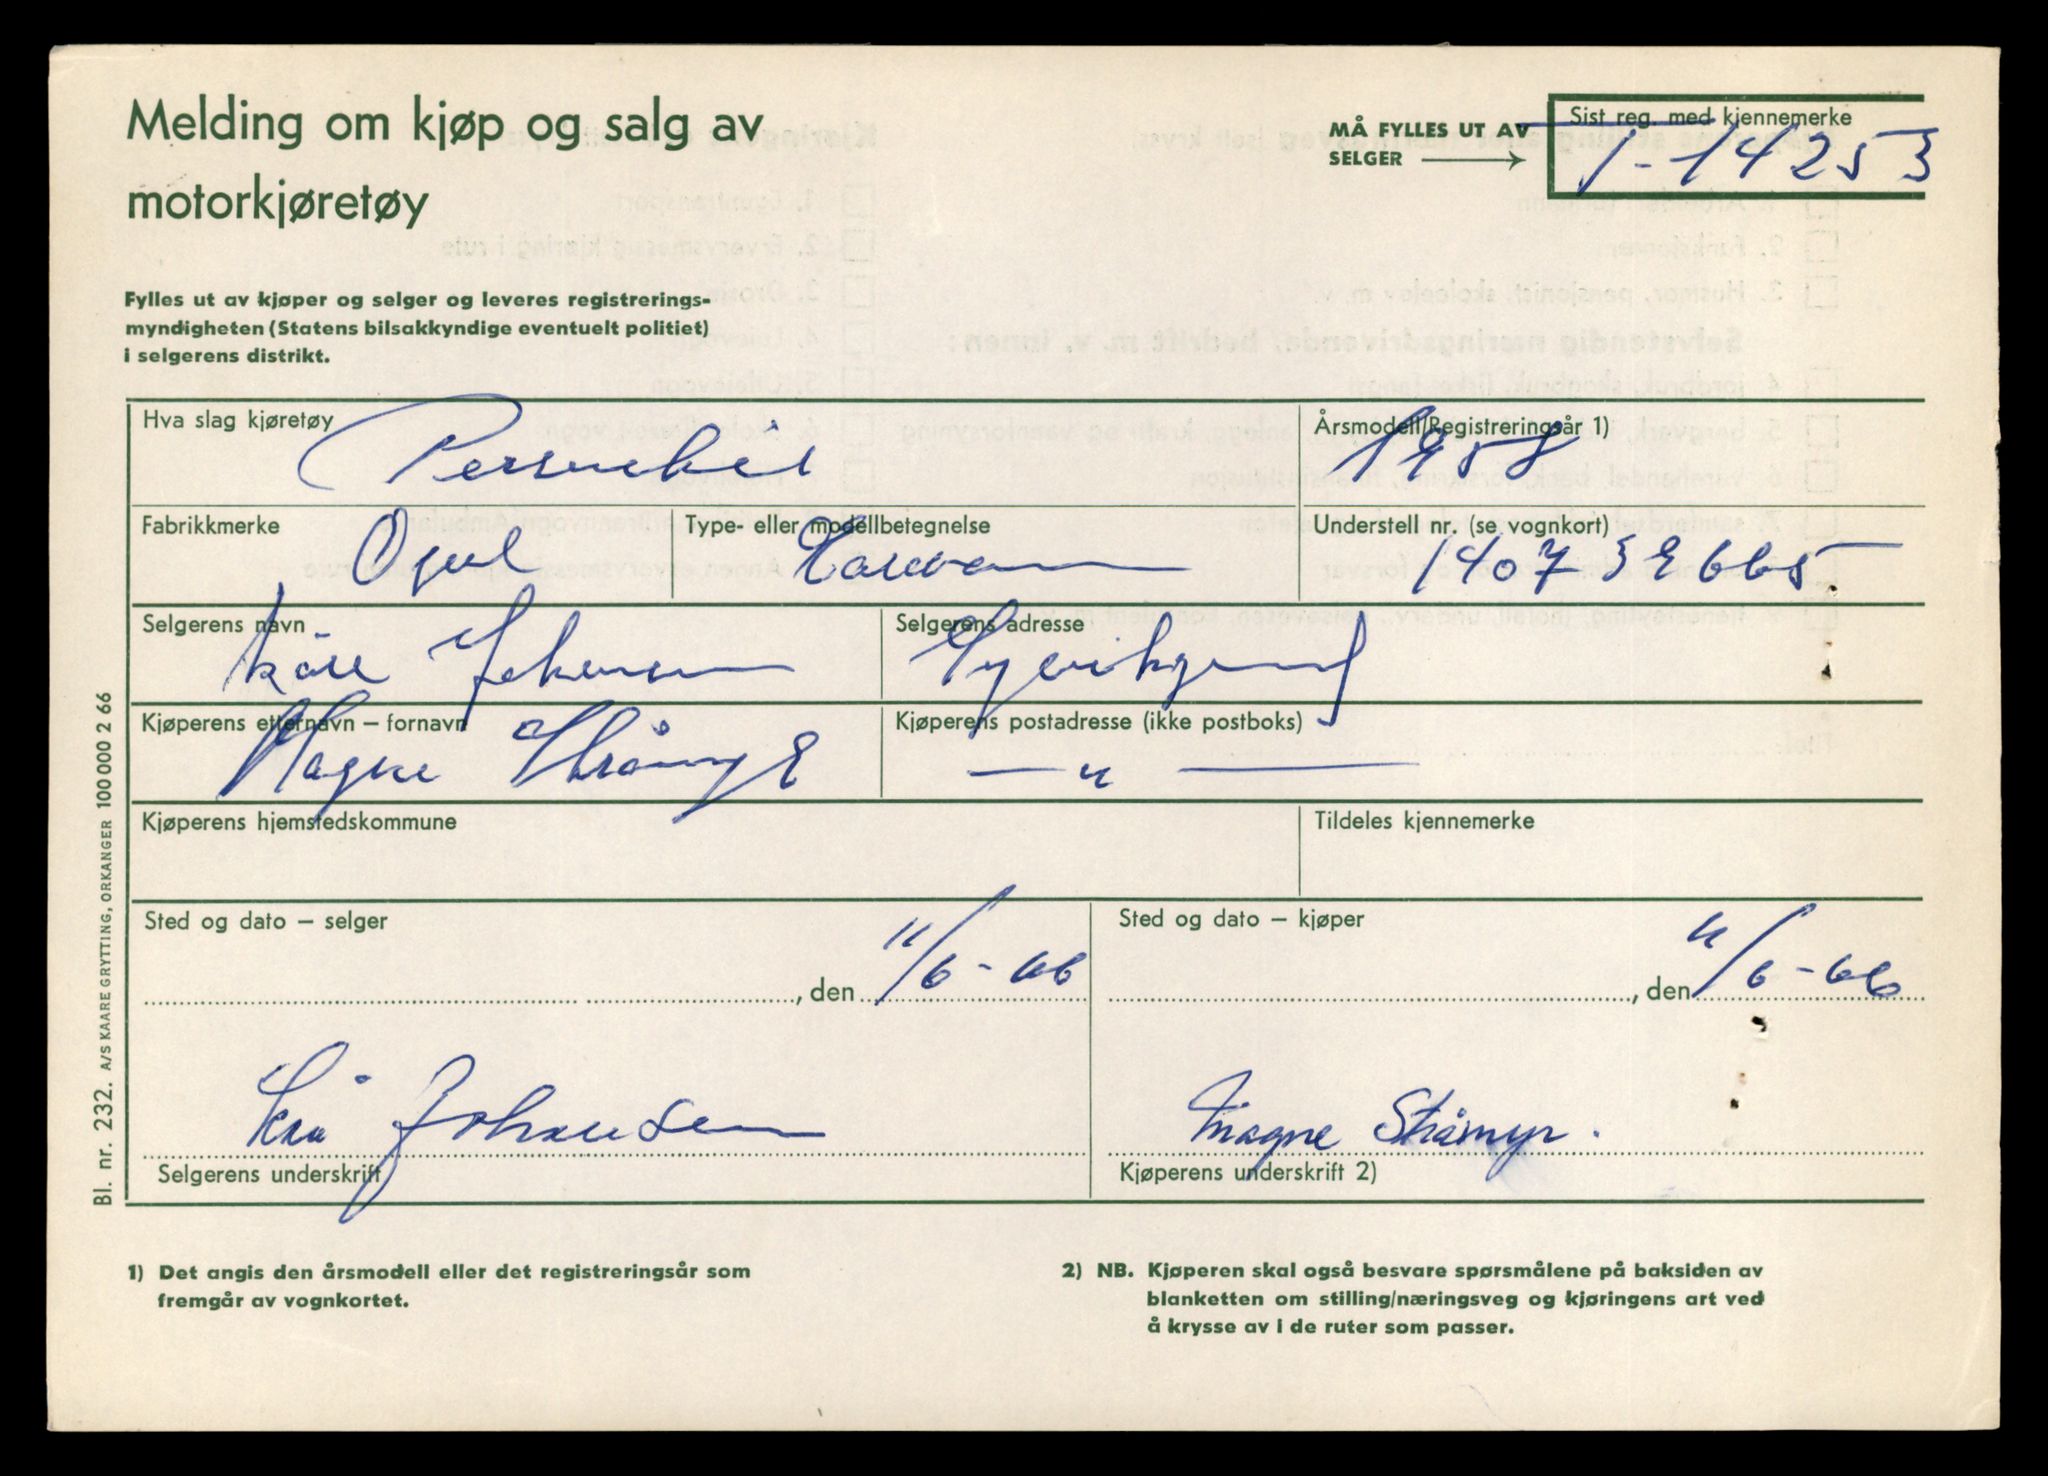 Melding om kjøp og salg av
motorkjøretøy
MÅ FYLLES UT AV
SELGER
Sist reg. med kjennemerke
T-14253
Fylles ut av kjøper og selger og leveres registrerings-
myndigheten (Statens bilsakkyndige eventuelt politiet)
i selgerens distrikt.
Hva slag kjøretøy
Personbil
Årsmodell/Registreringsår 1)
1958
Fabrikkmerke
Opel
Type- eller modellbetegnelse
Karavan
Understell nr. (se vognkort)
140739665
Selgerens navn
Kåre Johansen
Selgerens adresse
Kjøperens etternavn – fornavn
Magne Stråmyr
Kjøperens postadresse (ikke postboks)
— " —
Kjøperens hjemstedskommune
Tildeles kjennemerke
Sted og dato – selger
, den 11/6-66
Sted og dato – kjøper
, den 11/6-66
Kåre Johansen
Selgerens underskrift
Magne Stråmyr.
Kjøperens underskrift 2)
1) Det angis den årsmodell eller det registreringsår som
fremgår av vognkortet.
2) NB. Kjøperen skal også besvare spørsmålene på baksiden av
blanketten om stilling/næringsveg og kjøringens art ved
å krysse av i de ruter som passer.
Bl. nr. 232. A/S KAARE GRYTTING, ORKANGER 100 000 2 66